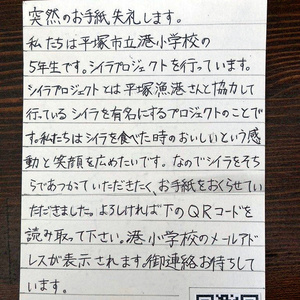 突然のお手紙失礼します。
私たちは平塚市立港小学校の
5年生です。シイラプロジェクトを行っています。
シイラプロジェクトとは平塚漁港さんと協力して
行っているシイラを有名にするプロジェクトのことで
す。私たちはシイラを食べた時のおいしいという感
動と笑顔を広めたいです。なのでシイラをそち
らであつかていただきたく、お手紙をおくらせてい
ただきました。よろしければ下のQRコードを
読み取って下さい。港小学校のメールアド
レスが表示されます。御連絡お待ちして
います。